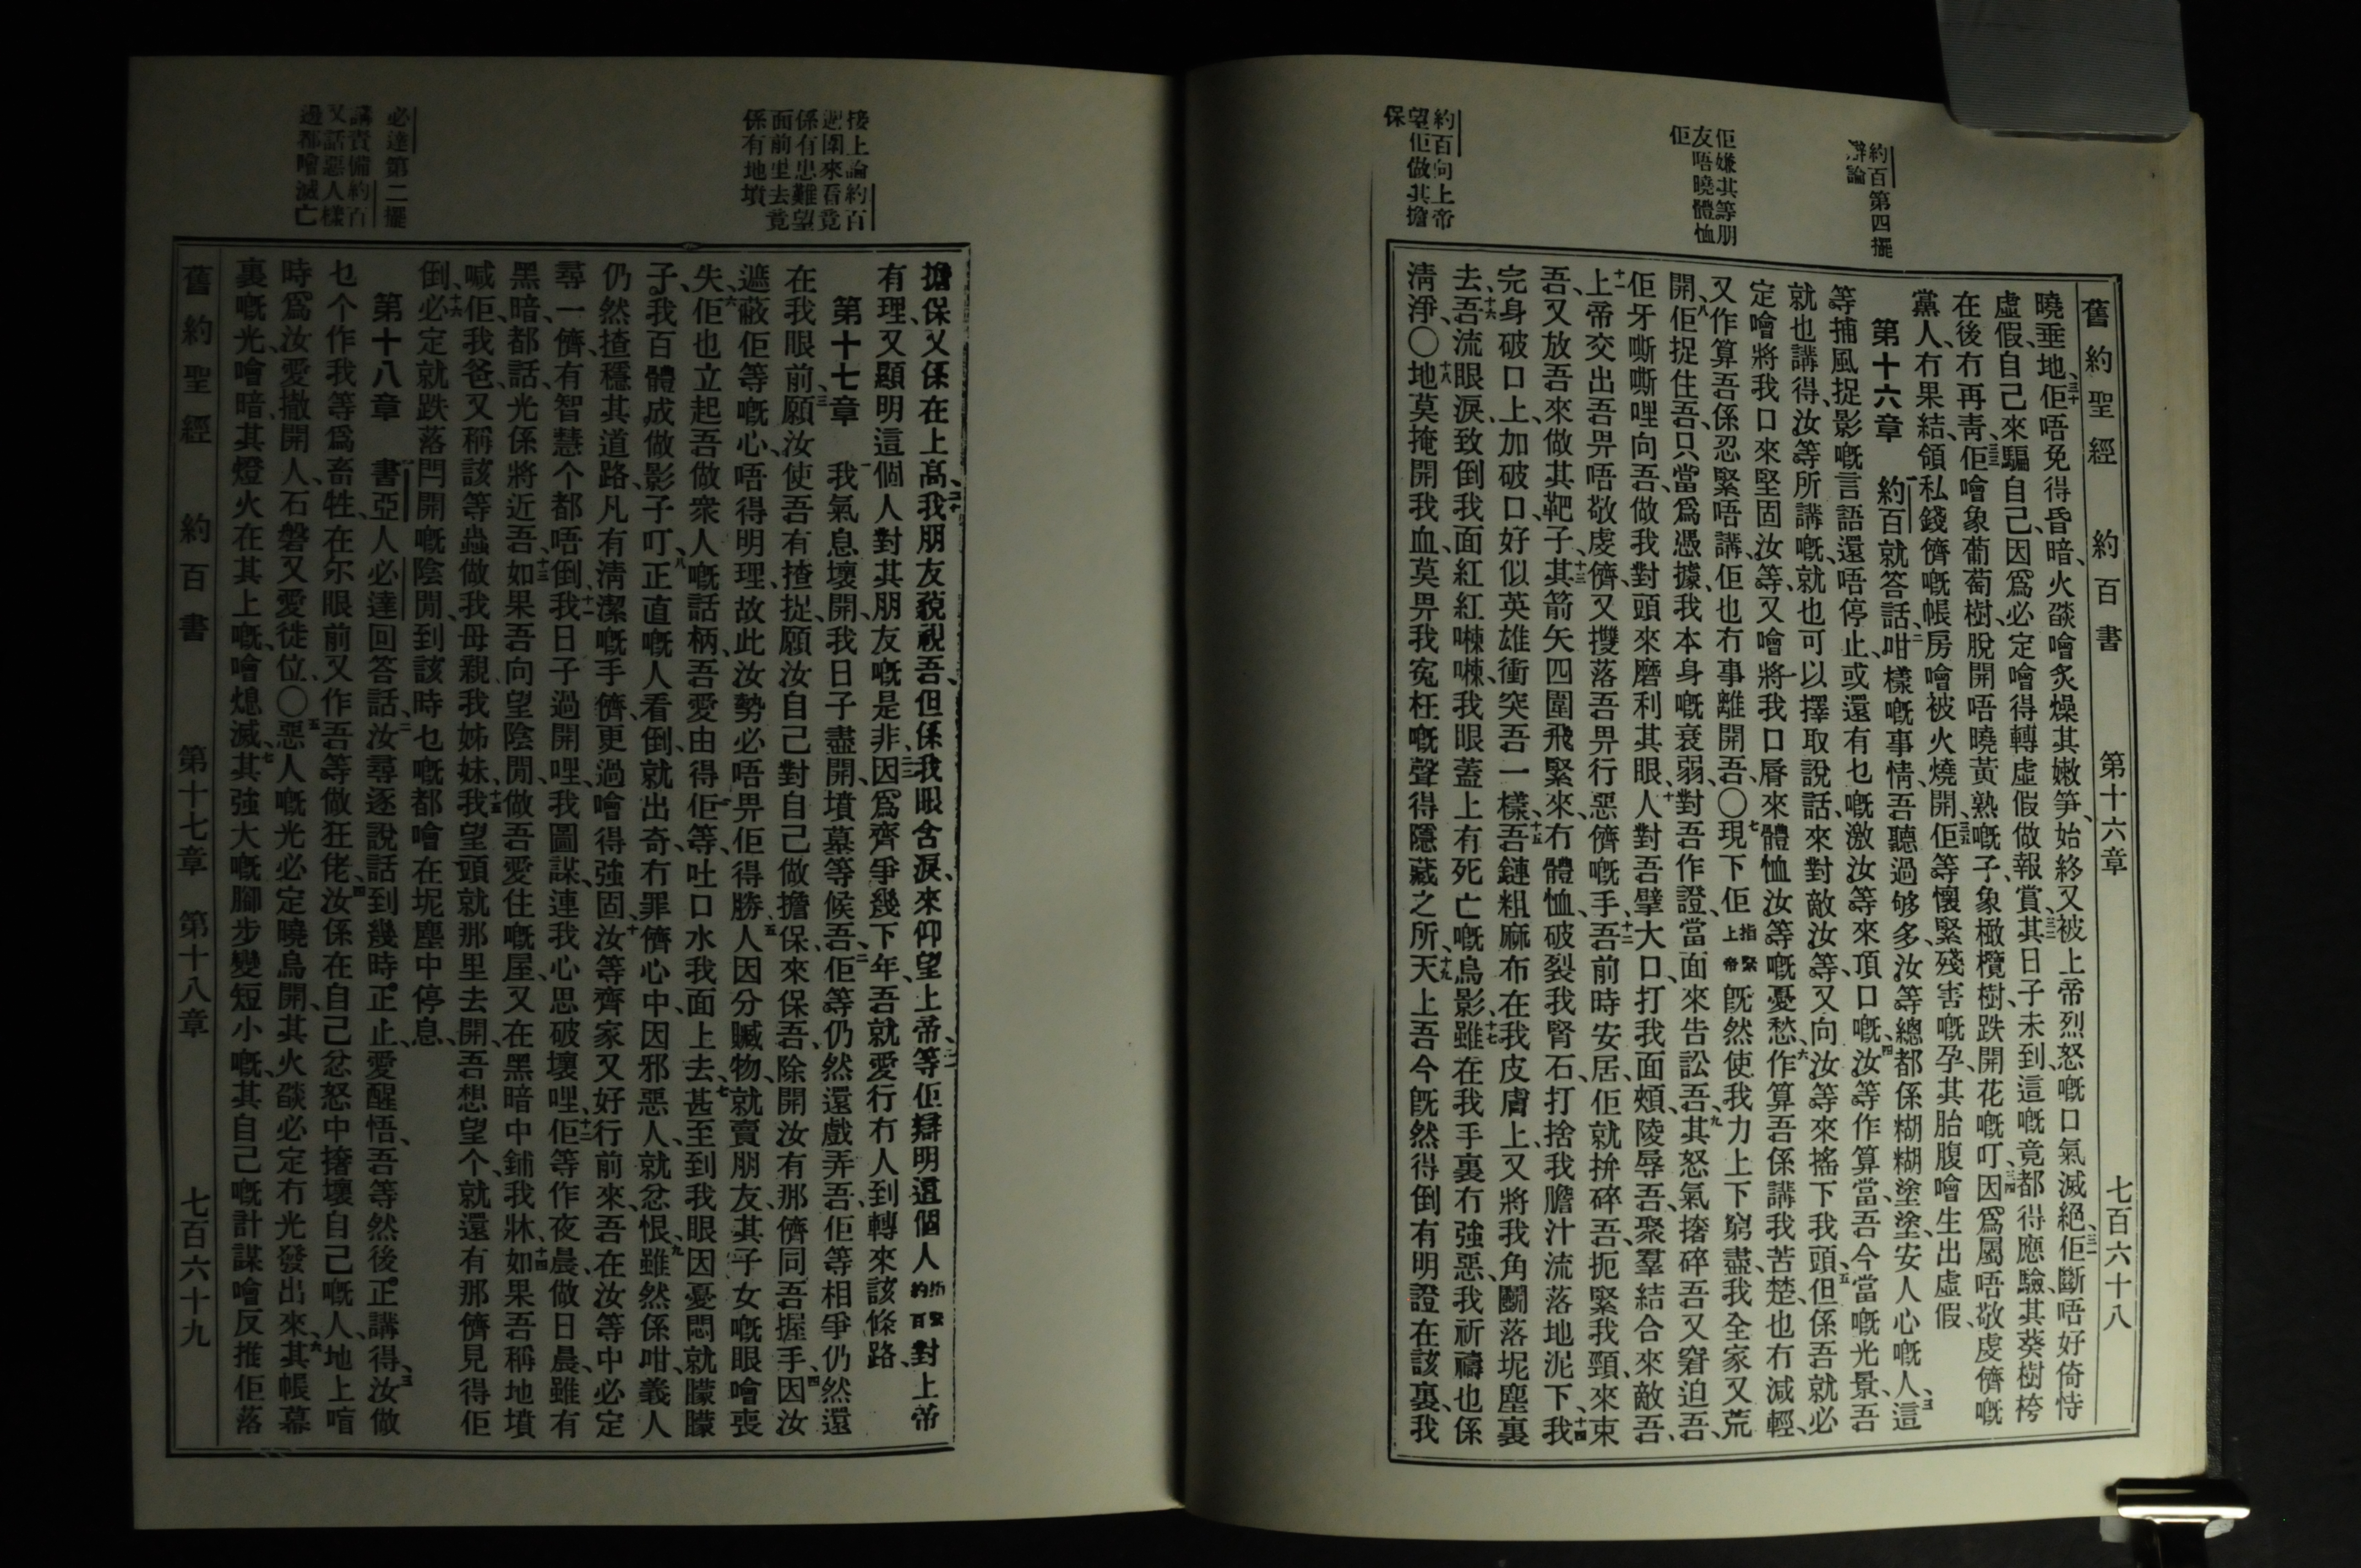 約百第四擺
辯論
佢嫌其等朋
友唔曉體恤
佢
約百向上帝
望佢做其擔
保
舊約聖經 約百書 第十六章 七百六十八
曉垂地、三十佢唔免得昏暗、火燄噲炙燥其嫩笋、始終又被上帝烈怒嘅口氣滅絕、三一佢斷唔好倚恃
虛假、自己來騙自己、因爲必定噲得轉虛假做報賞、三二其日子未到、這嘅竟都得應驗、其葵樹桍
在後冇再青、三三佢噲象葡萄樹、脫開唔曉黃熟嘅子、象橄欖樹、跌開花嘅叮、三四因爲屬唔敬虔儕嘅
黨人、冇果結、領私錢儕嘅帳房噲被火燒開、三五佢等懷緊殘害嘅孕、其胎腹噲生出虛假、
第十六章 一約百就答話、二咁樣嘅事情、吾聽過够多、汝等總都係糊糊塗塗、安人心嘅人、三這
等捕風捉影嘅言語還唔停止、或還有乜嘅激汝等來頂口嘅、四汝等作算當吾今當嘅光景、吾
就也講得、汝等所講嘅、就也可以擇取說話、來對敵汝等、又向汝等來搖下我頭、五但係吾就必
定噲將我口來堅固汝等、又噲將我口脣來體恤汝等嘅憂愁、六作算吾係講我苦楚、也冇減輕、
又作算吾係忍緊唔講、佢也冇事離開吾、〇七現下佢指緊上帝旣然使我力上下窮盡、我全家又荒
開、八佢捉住吾、只當爲憑據、我本身嘅衰弱、對吾作證、當面來告訟吾、九其怒氣搼碎吾、又窘迫吾、
佢牙嘶嘶哩向吾、做我對頭來磨利其眼、十人對吾擘大口、打我面頰、陵辱吾、聚羣結合來敵吾、
十一上帝交出吾畀唔敬虔儕、又㩳落吾畀行惡儕嘅手、十二吾前時安居、佢就拚碎吾、扼緊我頸、來束
吾、又放吾來做其靶子、十三其箭矢四圍飛緊來、冇體恤、破裂我腎石、打捨我膽汁流落地泥下、十四我
完身破口上加破口、好似英雄衝突吾一樣、十五吾鏈粗麻布在我皮膚上、又將我角鬬落坭塵裏
去、十六吾流眼淚、致倒我面紅紅㖦㖦、我眼蓋上有死亡嘅烏影、十七雖在我手裏冇強惡、我祈禱也係
淸淨、〇十八地莫掩開我血、莫畀我寃枉嘅聲得隱藏之所、十九天上吾今旣然得倒有明證在該裏、我
接上論約百
週圍來看竟
係有患難望
面前生去竟
係有地墳
必達第二擺
講責備約百
又話惡人樣
邊都噲滅亡
擔保又係在上高、二十我朋友藐視吾、但係我眼含淚、來仰望上帝、二一等佢辯明這個人指緊約百對上帝
有理、又顯明這個人對其朋友嘅是非、二二因爲齊爭幾下年、吾就愛行冇人到轉來該條路、
第十七章 一我氣息壞開、我日子盡開、墳墓等候吾、二佢等仍然還戲弄吾、佢等相爭仍然還
在我眼前、三願汝使吾有揸捉、願汝自己對自己做擔保、來保吾、除開汝有那儕同吾握手、四因汝
遮蔽佢等嘅心、唔得明理、故此汝勢必唔畀佢得勝、五人因分贓物、就賣朋友、其子女嘅眼噲喪
失、六佢也立起吾做衆人嘅話柄、吾愛由得佢等、吐口水我面上去、七甚至到我眼因憂悶就朦朦
子、我百體成做影子叮、八正直嘅人看倒、就出奇、冇罪儕心中、因邪惡人、就忿恨、九雖然係咁、義人
仍然揸穩其道路、凡有淸潔嘅手儕、更過噲得強固、十汝等齊家又好行前來、吾在汝等中必定
尋一儕、有智慧个都唔倒、十一我日子過開哩、我圖謀、連我心思破壞哩、十二佢等作夜晨做日晨、雖有
黑暗、都話、光係將近吾、十三如果吾向望陰間、做吾愛住嘅屋、又在黑暗中鋪我牀、十四如果吾稱地墳
喊佢、我爸、又稱該等蟲做我母親、我姊妹、十五我望頭就那里去開、吾想望个、就還有那儕見得佢
倒、十六必定就跌落閂開嘅陰間、到該時乜嘅都噲在坭塵中停息、
第十八章 一書亞人必達回答話、二汝尋逐說話到幾時正止、愛醒悟、吾等然後正講得、三汝做
乜个作我等爲畜牲、在尔眼前又作吾等做狂佬、四汝係在自己忿怒中撦壞自己嘅人、地上喑
時爲汝愛撇開人、石磐又愛徙位、〇五惡人嘅光必定曉烏開、其火燄必定冇光發出來、六其帳幕
裏嘅光、噲暗、其燈火在其上嘅、噲熄滅、七其強大嘅腳步變短小嘅、其自己嘅計謀噲反推佢落
舊約聖經 約百書 第十七章 第十八章 七百六十九